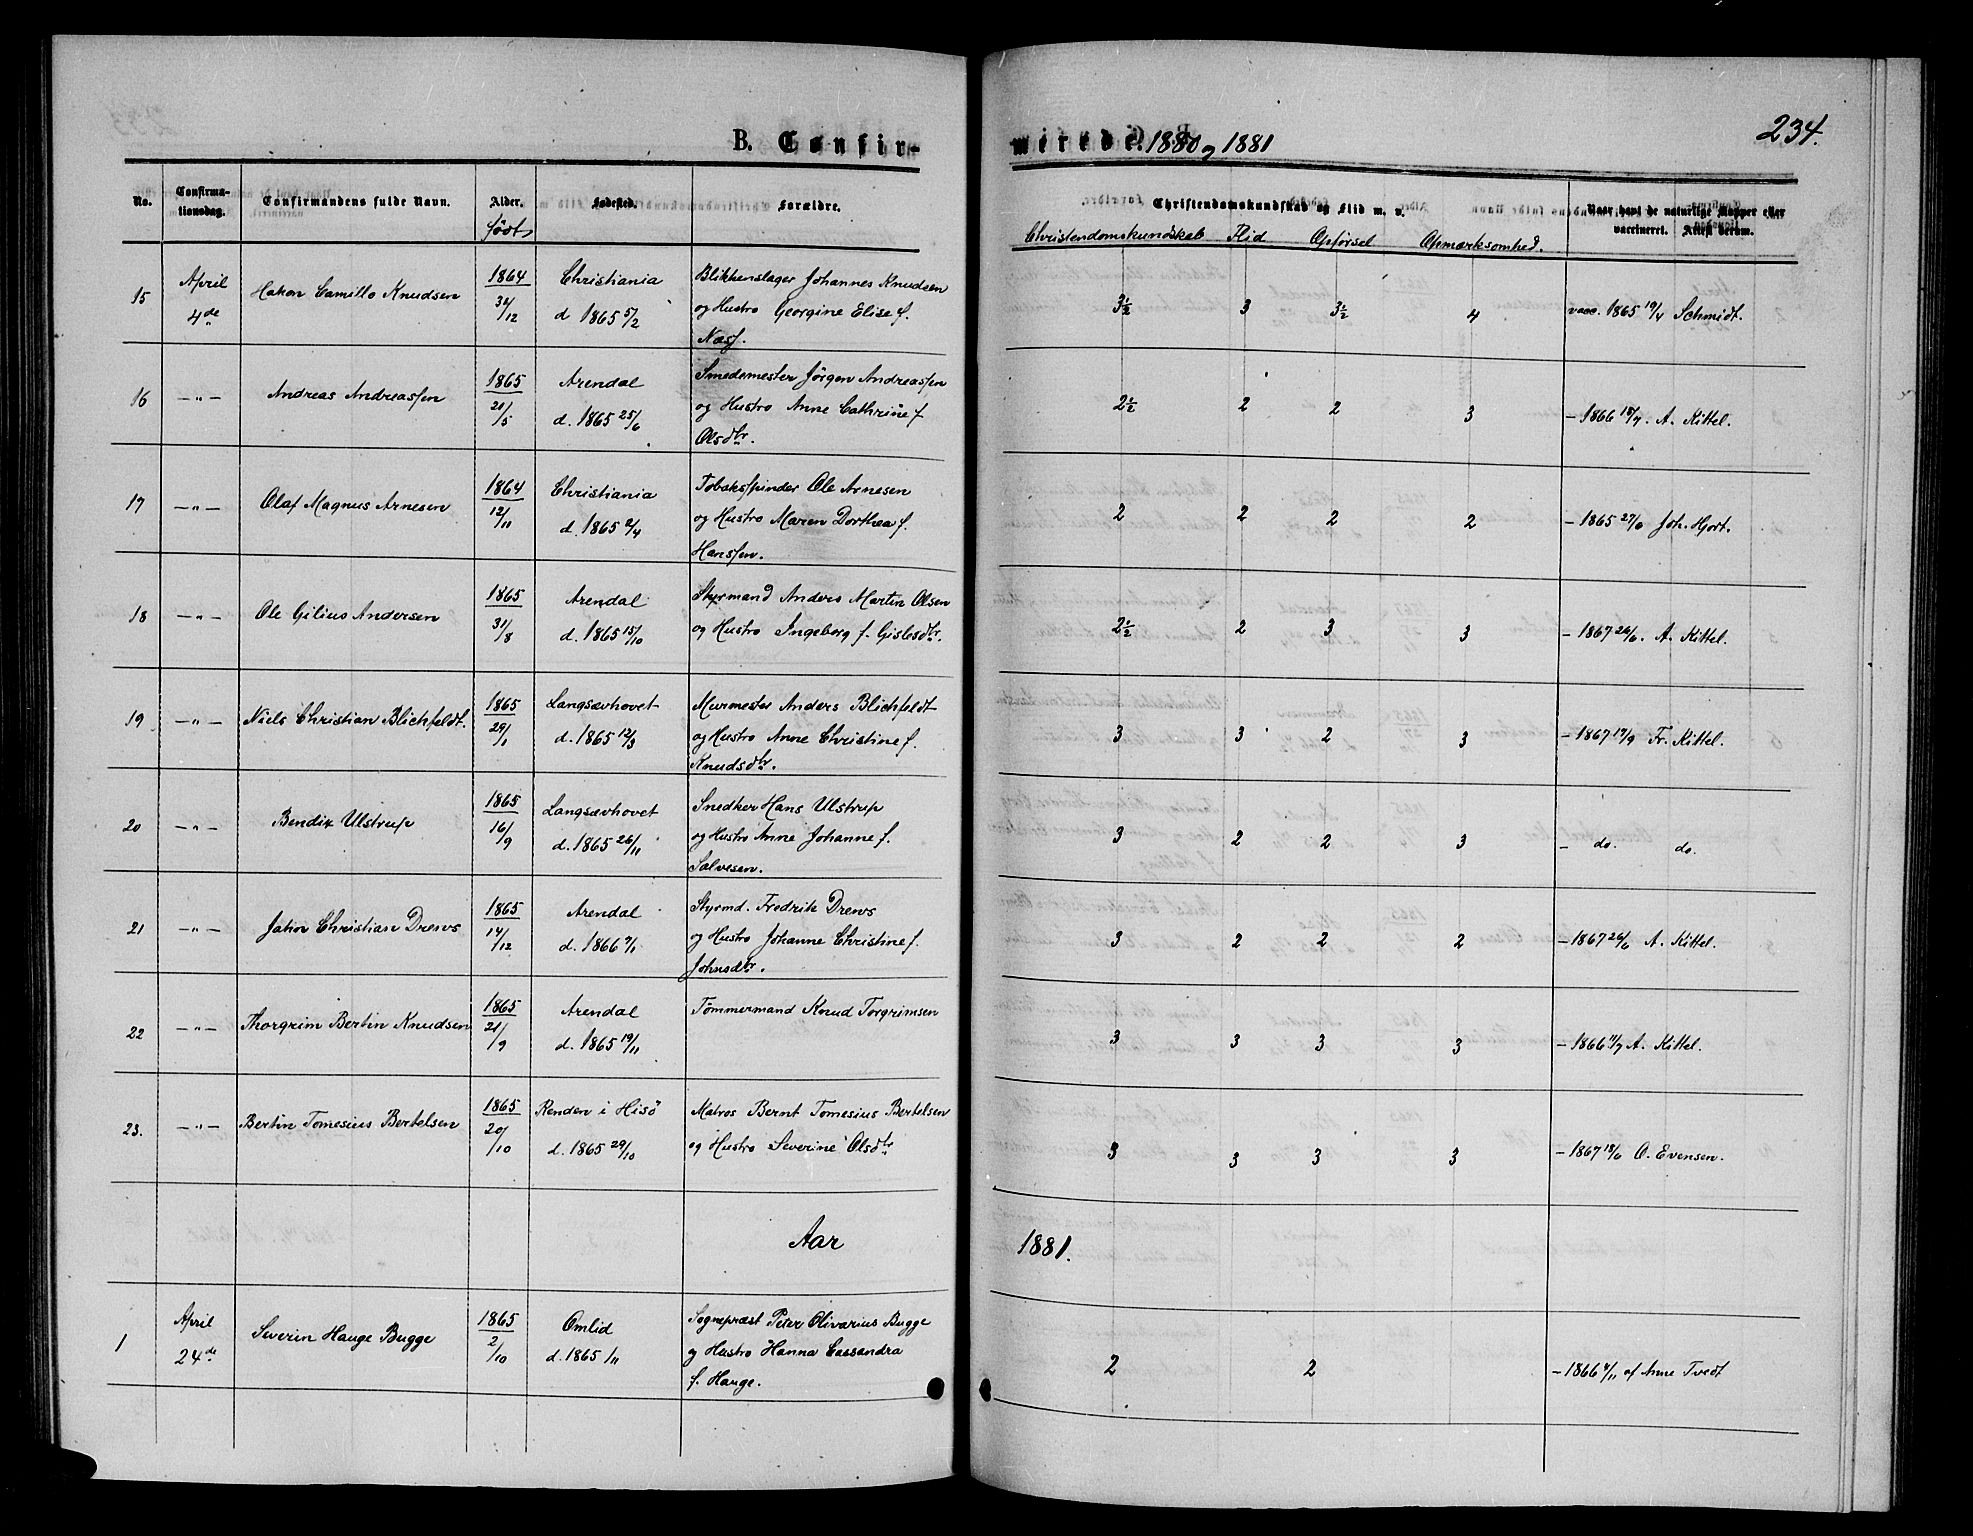 B. Confirmerede. 1880 og 1881
234.
No. Confirmationsdag. Confirmandens fulde Navn. Alder. Fødested. Forældre. Christendomskundskab og Flid m. v. Naar havt de naturlige Kopper eller vaccineret. Attest derom.
født Christendomskundskab Flid Opførsel Opmærksomhed.
15 April 4de Hakon Camillo Knudsen 1864 12 Christiania d 1865 5/2 Blikkenslager Johannes Knudsen
og Hustro Georgine Elise f.
Næss. 3½ 3 3½ 4 vacc. 1865 19/4 Schmidt.
16 —"— Andreas Andreassen 1865 21/5 Arendal d. 1865 25/6 Smedemester Jørgen Andreassen
og Hustro Anne Cathrine f.
Olsdtr. 2½ 2 2 3 – 1866 18/7. A. Kittel.
17 —"— Olaf Magnus Arnesen 1864 12/11 Christiania d. 1865 2/4 Tobakspinder Ole Arnesen
og Hustro Maren Dorthea f.
Hanssen. 2 2 2 2 – 1865 27/6 Joh. Hjort.
18 —"— Ole Gilius Andersen 1865 31/8 Arendal d. 1865 15/10 Styrmand Anders Martin Olsen
og Hustro Ingeborg f. Gislesdtr. 2½ 2 3 3 – 1867 26/6. A. Kittel.
19 —"— Niels Christian Blichfeldt. 1865 29/1 Langsævhovet d. 1865 12/3 Murmester Anders Blichfeldt
og Hustro Anne Christine f.
Knudsdtr. 3 3 2 3 – 1867 19/9 Fr. Kittel.
20 —"— Bendix Ulstrup 1865 16/9 Langsævhovet d. 1865 26/11 Snedker Hans Ulstrup
og Hustro Anne Johanne f.
Salvesen. 3 2 2 3 – do. do.
21 —"— Johon Christian Drews 1865 14/12 Arendal d. 1866 7/1 Styrmd. Fredrik Drews
og Hustro Johanne Christine f.
Johnsdtr. 3 2 2 2 – 1867 26/6 A. Kittel.
22 —"— Thorgrim Bertin Knudsen 1865 21/9 Arendal d. 1865 19/11 Tømmermand Knud Torgrimsen 3 3 3 3 – 1866 11/7 A. Kittel.
23. —"— Bertin Tomesius Bertelsen 1865 20/10 Renden i Hisö d. 1865 29/10 Matros Bernt Tomesius Bertelsen
og Hustro Severine Olsdtr 3 3 3 3 – 1867 18/6 O. Evensen.
Aar 1881.
1 April 24de Severin Hauge Bugge 1865 2/10 Omlid d. 1865 /11 Sognepræst Peter Olivarius Bugge
og Hustro Hanna Cassandra
f. Hauge. 2 2 – 1866 4/11 af Anne Tvedt